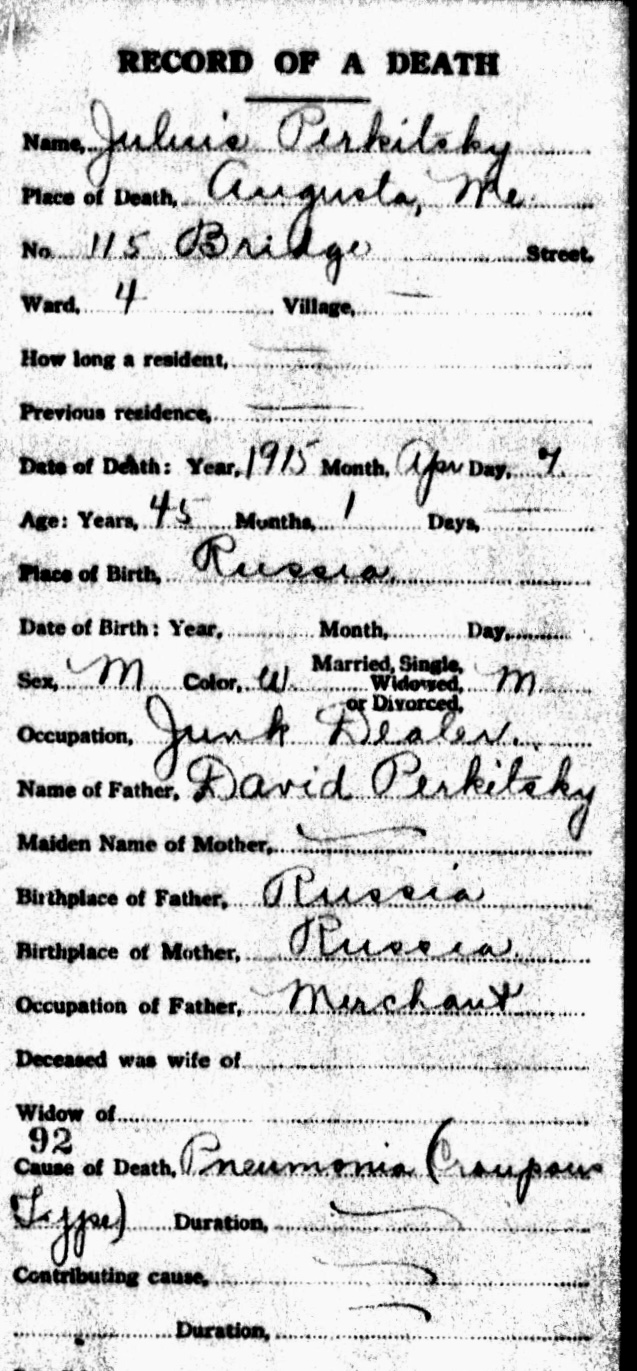 RECORD OF A DEATH
Name, Julius Perkitsky
Place of Death, Augusta, Me.
No. 115 Bridge Street.
Ward, 4 Village, —
How long a resident, —
Previous residence, —
Date of Death: Year, 1915 Month, Apr Day, 7
Age: Years, 45 Months, 1 Days, —
Place of Birth, Russia
Date of Birth: Year, Month, Day,
Sex, M Color, W. Married, Single, Widowed, or Divorced, M
Occupation, Junk Dealer.
Name of Father, David Perkitsky
Maiden Name of Mother, —
Birthplace of Father, Russia
Birthplace of Mother, Russia
Occupation of Father, Merchant
Deceased was wife of
Widow of
92
Cause of Death, Pneumonia (Croupous
Type) Duration, —
Contributing cause, —
Duration, —